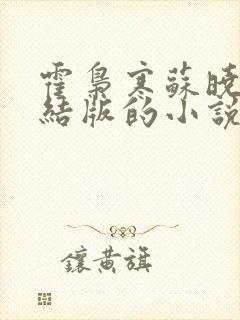 霍梟寒蘇曉
結版的小說
鑲黃旗